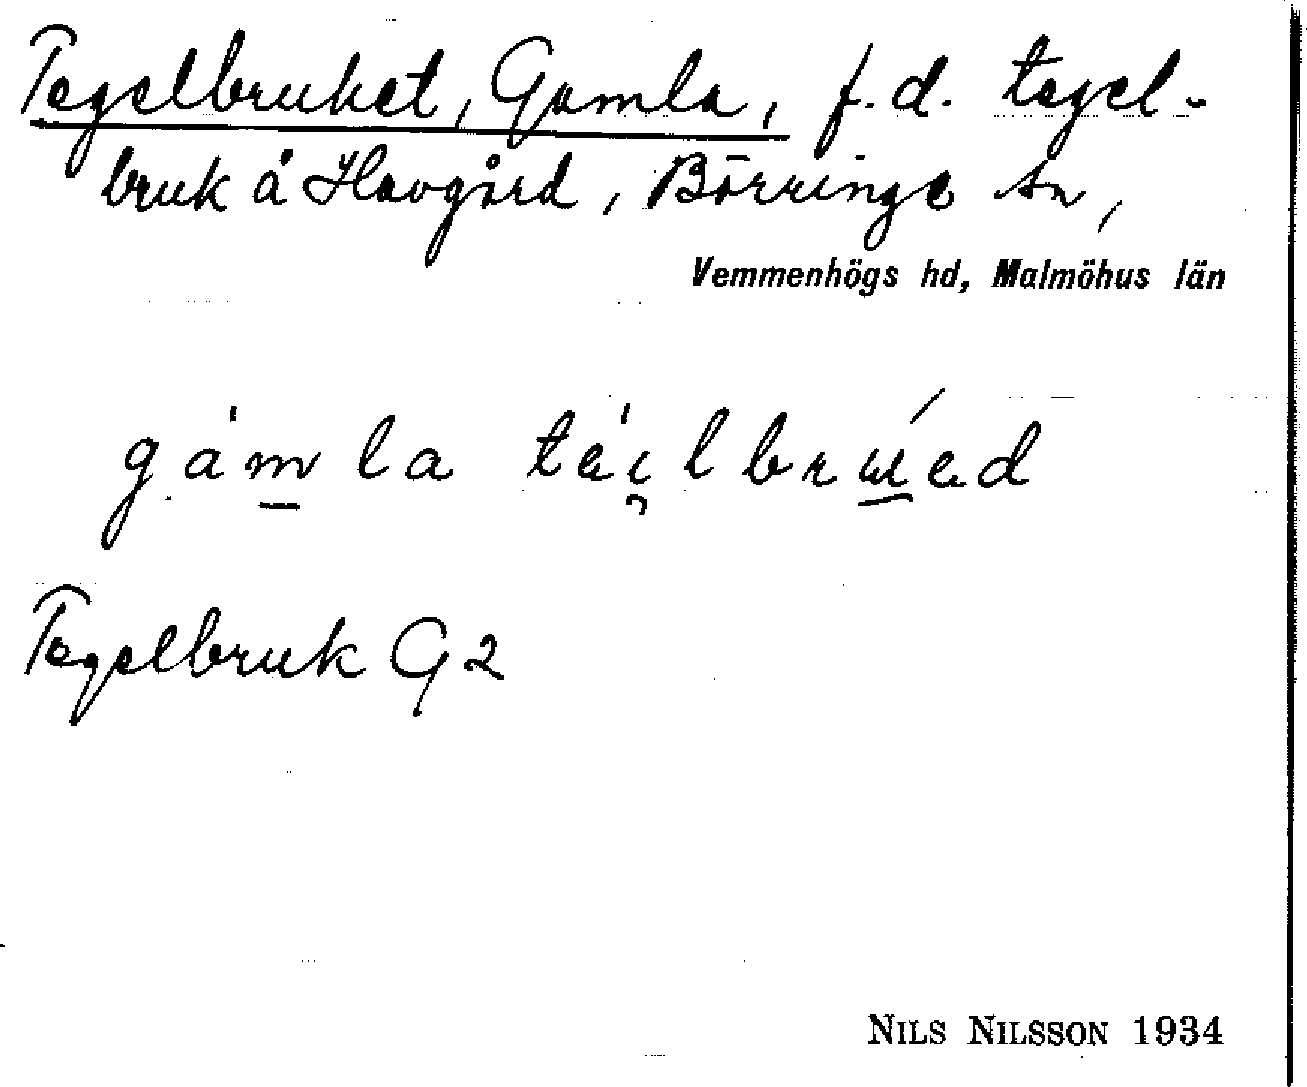 Tegelbruket, Gamla, f.d. tegel-
bruk å Havgård, Börringe sn,
Vemmenhögs hd, Malmöhus län
gám̲la tái̯lbrú̲ed
Tegelbruk G2
NILS NILSSON 1934